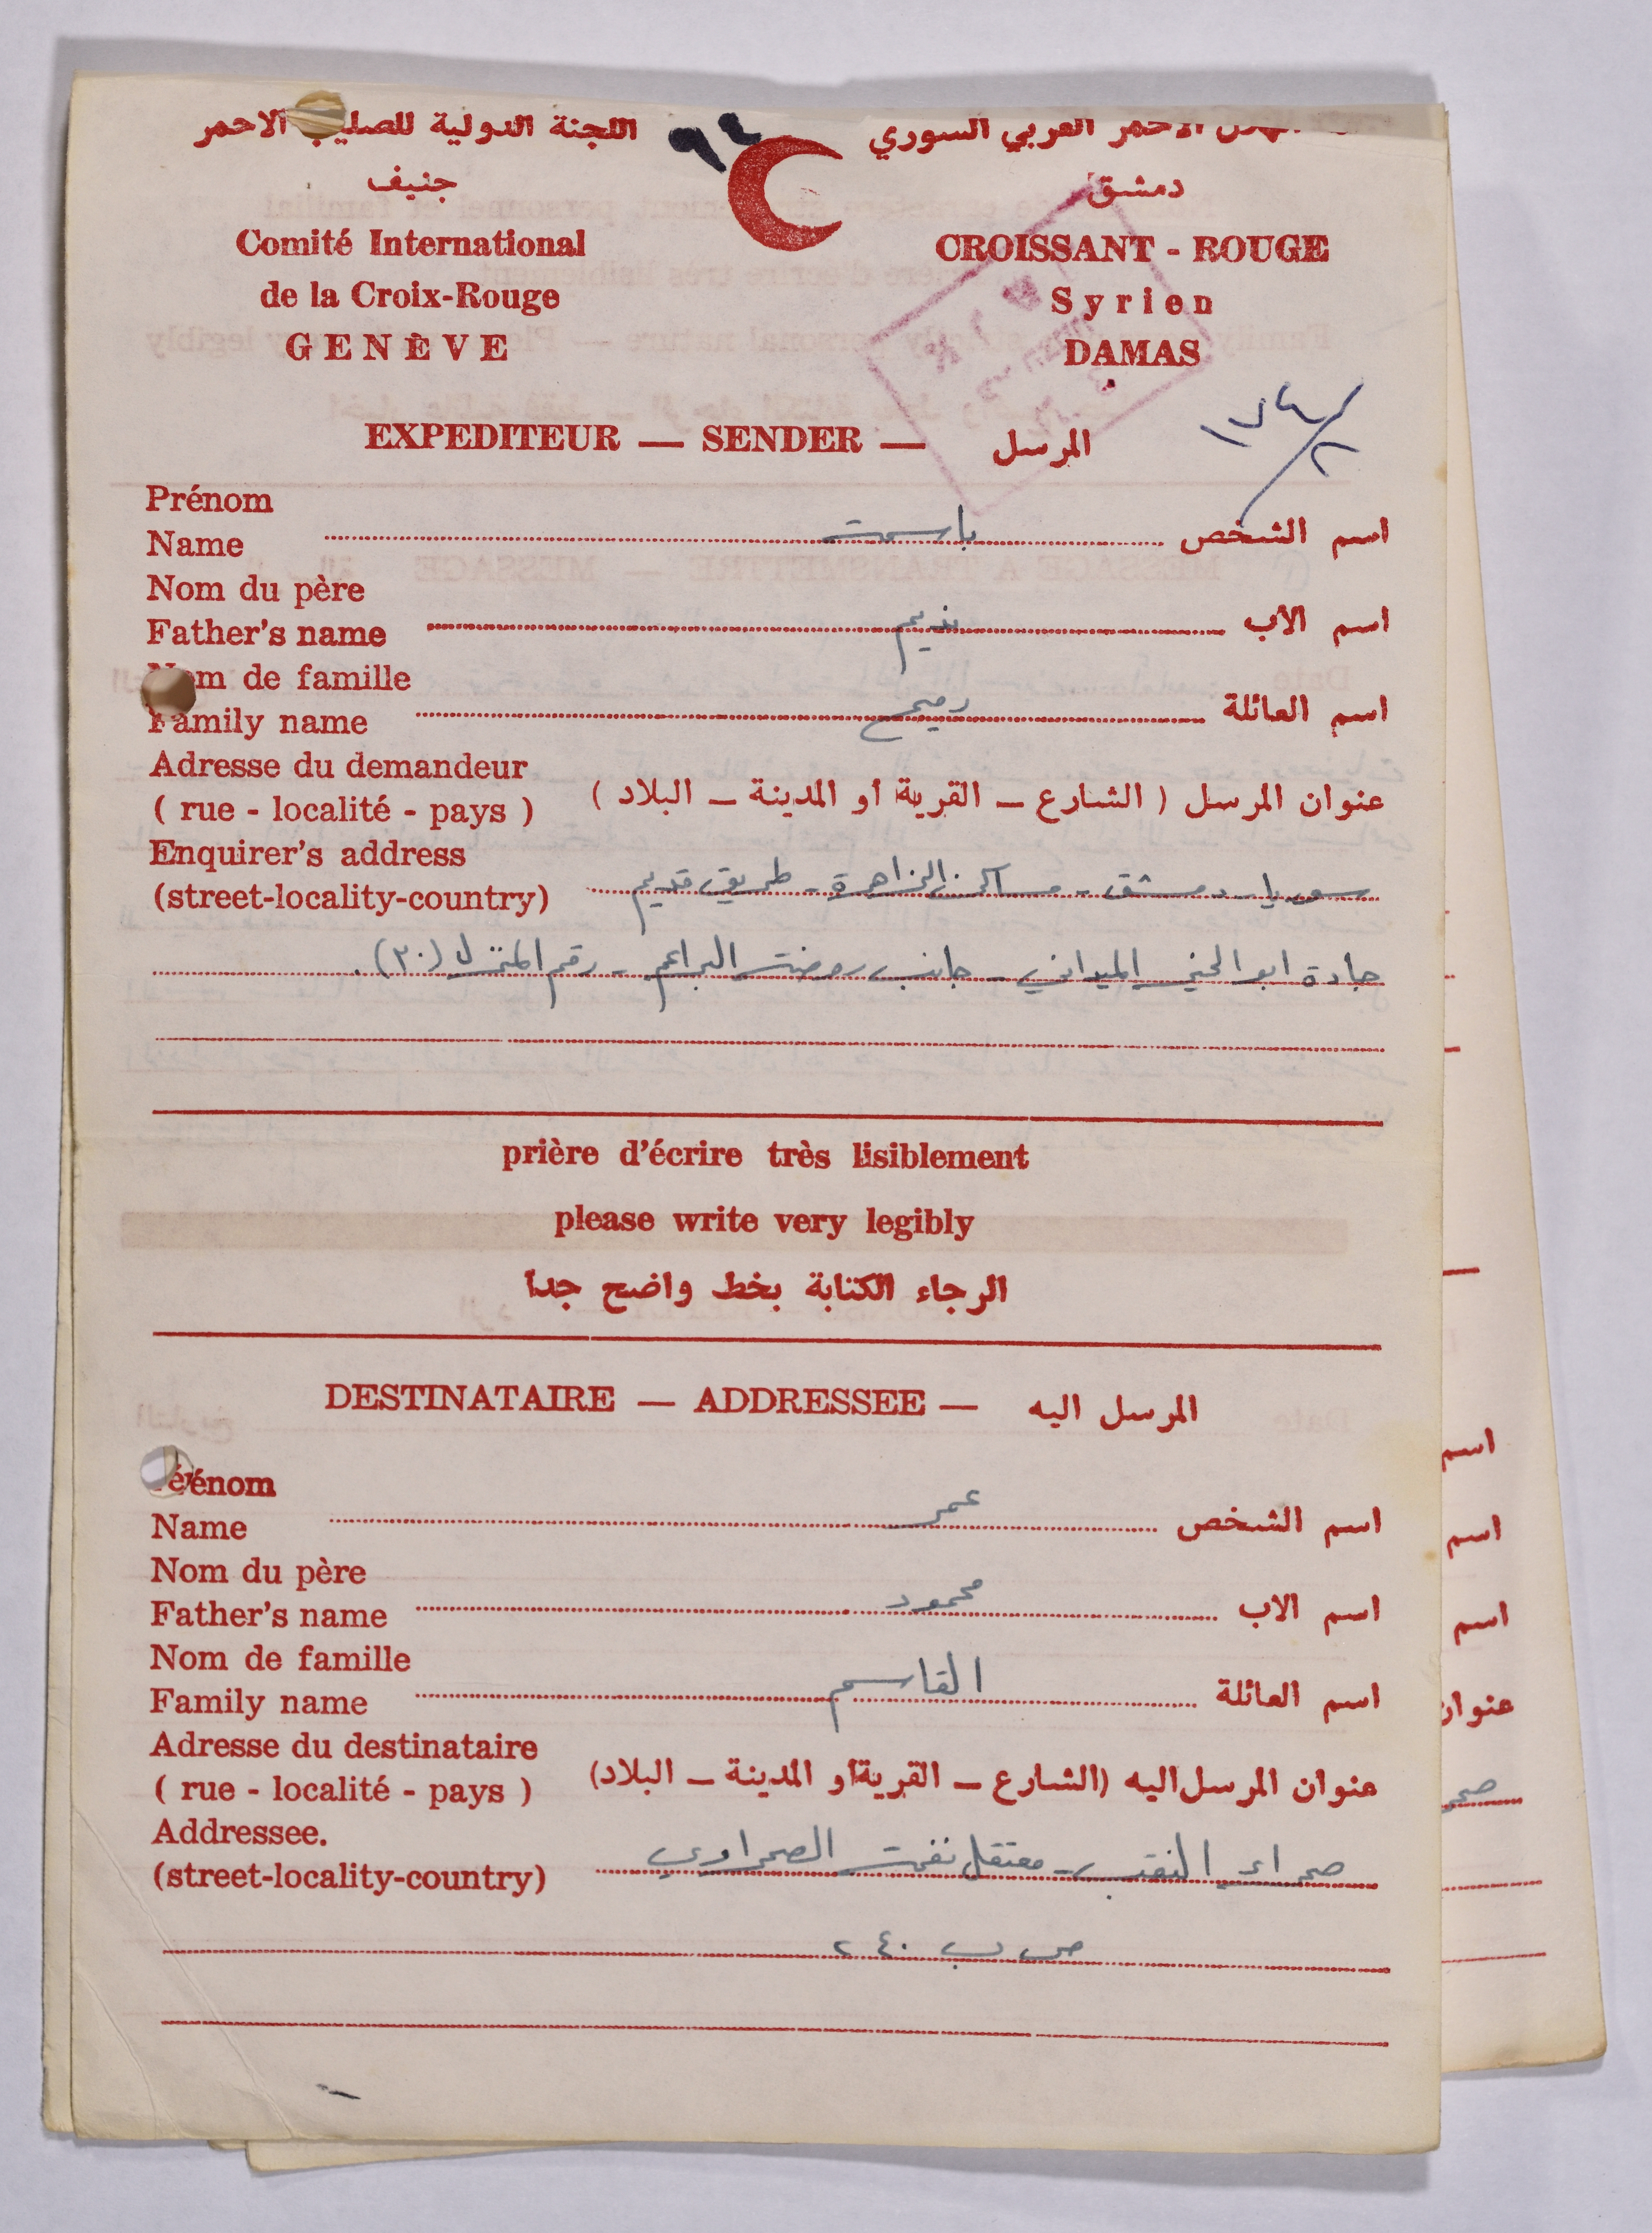 اللجنة الدولية للصليب الاحمر
جنيف
Comité International
de la Croix-Rouge
GENÈVE
٩٤
الاحمر العربي السوري
دمشق
CROISSANT - ROUGE
Syrien
DAMAS
EXPEDITEUR — SENDER — المرسل
Prénom
Name باسمة اسم الشخص
Nom du père
Father's name نديم اسم الاب
Nom de famille
Family name رميح اسم العائلة
Adresse du demandeur
( rue - localité - pays ) عنوان المرسل ( الشارع ــ القرية او المدينة ــ البلاد )
Enquirer's address
(street-locality-country) سوريا - دمشق - مساكن الزاهرة - طريق قديم
جادة ابو الميداني - جانب روضة البراعم - رقم المنزل (٣٠).
prière d'écrire très lisiblement
please write very legibly
الرجاء الكتابة بخط واضح جدا
DESTINATAIRE — ADDRESSEE — المرسل اليه
Prénom
Name عمر اسم الشخص
Nom du père
Father's name محمود اسم الاب
Nom de famille
Family name القاسم اسم العائلة
Adresse du destinataire
( rue - localité - pays ) عنوان المرسل اليه (الشارع ــ القرية او المدينة ــ البلاد)
Addressee.
(street-locality-country) صحراء النقب - معتقل نفحة الصحراوي
ص ب ٢٤٠
اسم
اسم
اسم
عنوان
صحر